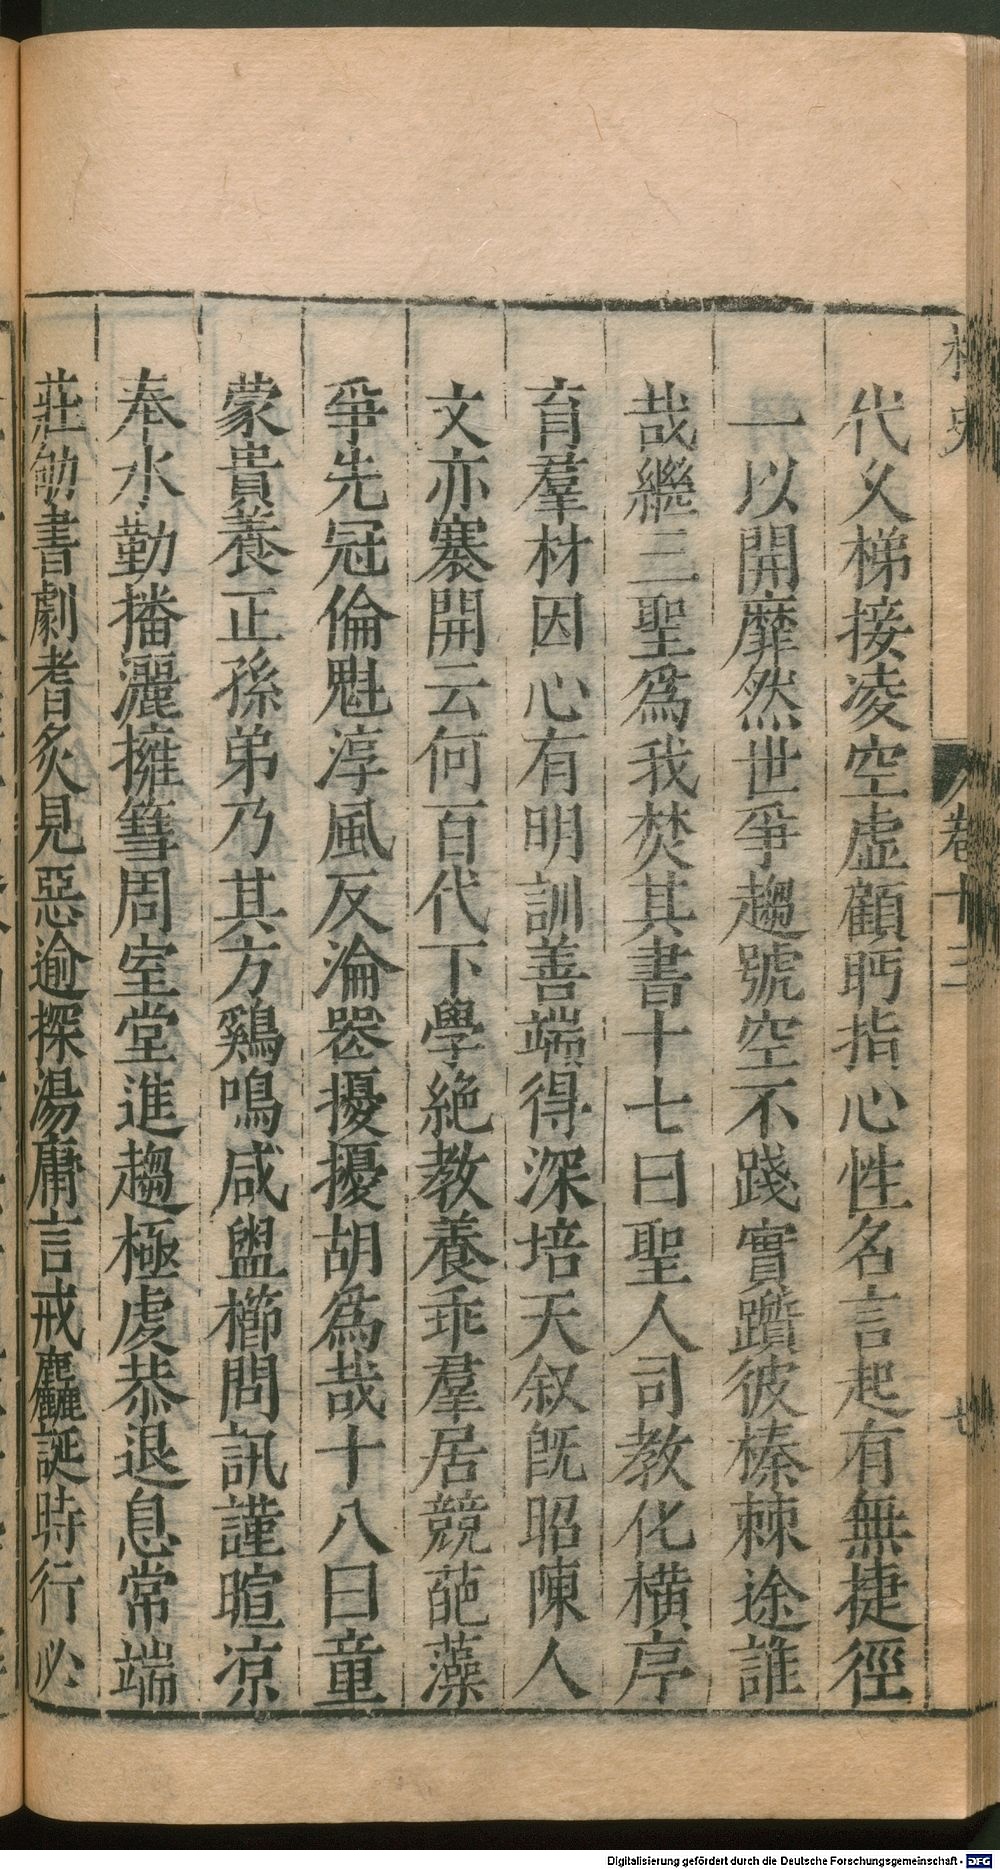 代久梯接凌空虛顧眄指心性名言起有無捷徑
一以開靡然世爭趨號空不踐實躓彼榛棘途誰
哉繼三聖爲我焚其書十七曰聖人司教化横序
育羣材因心有明訓善端得深培天叙旣昭陳人
文亦褰開云何百代下學絶教養乖羣居競葩藻
爭先冠倫魁淳風反淪喪擾擾胡爲哉十八曰童
蒙貴養正孫弟乃其方鷄鳴咸盥櫛問訊謹暄凉
奉水勤播灑擁篲周室堂進趨極虔恭退息常端
莊劬書劇耆炙見惡逾探湯庸言戒麤誕時行必
史
卷十三
七
Digitalisierung gefördert durch die Deutsche Forschungsgemeinschaft - DFG